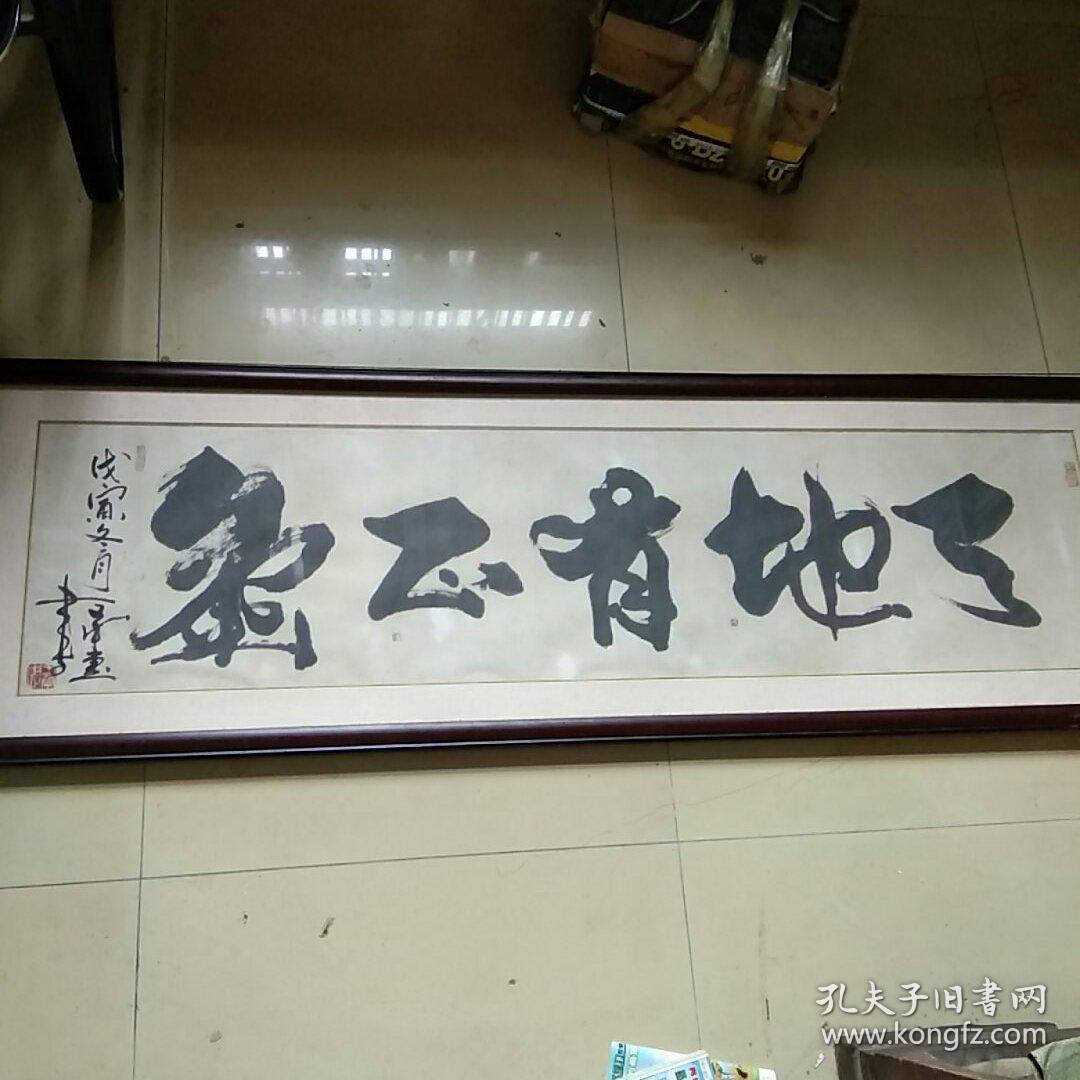 天地有正氣
戊寅冬月
孔夫子旧書网
www.kongfz.com